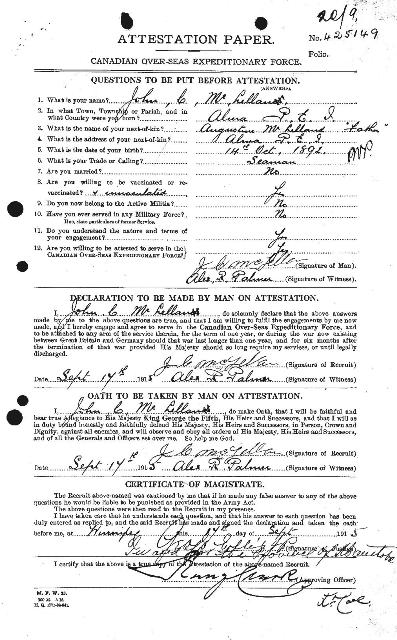 No. 425149
ATTESTATION PAPER.
Folio.
CANADIAN OVER-SEAS EXPEDITIONARY FORCE.
QUESTIONS TO BE PUT BEFORE ATTESTATION.
(ANSWERS)
1. What is your name? John C, McLelland
2. In what Town, Township or Parish, and in what Country were you born? Alma P.E.I.
3. What is the name of your next-of-kin? Augustine McLelland "Father"
4. What is the address of your next-of-kin? Alma P.E.I.
5. What is the date of your birth? 14th Oct. 1892
6. What is your Trade or Calling? Seaman
7. Are you married? No
8. Are you willing to be vaccinated or re-vaccinated? & innoculated Yes
9. Do you now belong to the Active Militia? No
10. Have you ever served in any Military Force? No
If so, state particulars of former Service.
11. Do you understand the nature and terms of your engagement? Yes
12. Are you willing to be attested to serve in the CANADIAN OVER-SEAS EXPEDITIONARY FORCE? Yes
(Signature of Man).
Alex R Palmer (Signature of Witness).
DECLARATION TO BE MADE BY MAN ON ATTESTATION.
I, John C McLelland, do solemnly declare that the above answers
made by me to the above questions are true, and that I am willing to fulfil the engagements by me now
made, and I hereby engage and agree to serve in the Canadian Over-Seas Expeditionary Force, and
to be attached to any arm of the service therein, for the term of one year, or during the war now existing
between Great Britain and Germany should that war last longer than one year, and for six months after
the termination of that war provided His Majesty should so long require my services, or until legally
discharged.
(Signature of Recruit)
Date Sept 17th 1915 Alex R Palmer (Signature of Witness)
OATH TO BE TAKEN BY MAN ON ATTESTATION.
I, John C McLelland, do make Oath, that I will be faithful and
bear true Allegiance to His Majesty King George the Fifth, His Heirs and Successors, and that I will as
in duty bound honestly and faithfully defend His Majesty, His Heirs and Successors, in Person, Crown and
Dignity, against all enemies, and will observe and obey all orders of His Majesty, His Heirs and Successors,
and of all the Generals and Officers set over me. So help me God.
(Signature of Recruit)
Date Sept 17th 1915 Alex R Palmer (Signature of Witness)
CERTIFICATE OF MAGISTRATE.
The Recruit above-named was cautioned by me that if he made any false answer to any of the above
questions he would be liable to be punished as provided in the Army Act.
The above questions were then read to the Recruit in my presence.
I have taken care that he understands each question, and that his answer to each question has been
duly entered as replied to, and the said Recruit has made and signed the declaration and taken the oath
before me, at Winnipeg this 17th day of Sept 1915
(Signature of Justice)
I certify that the above is a true copy of the Attestation of the above-named Recruit.
(Approving Officer)
Lt. Col.
M. F. W. 23.